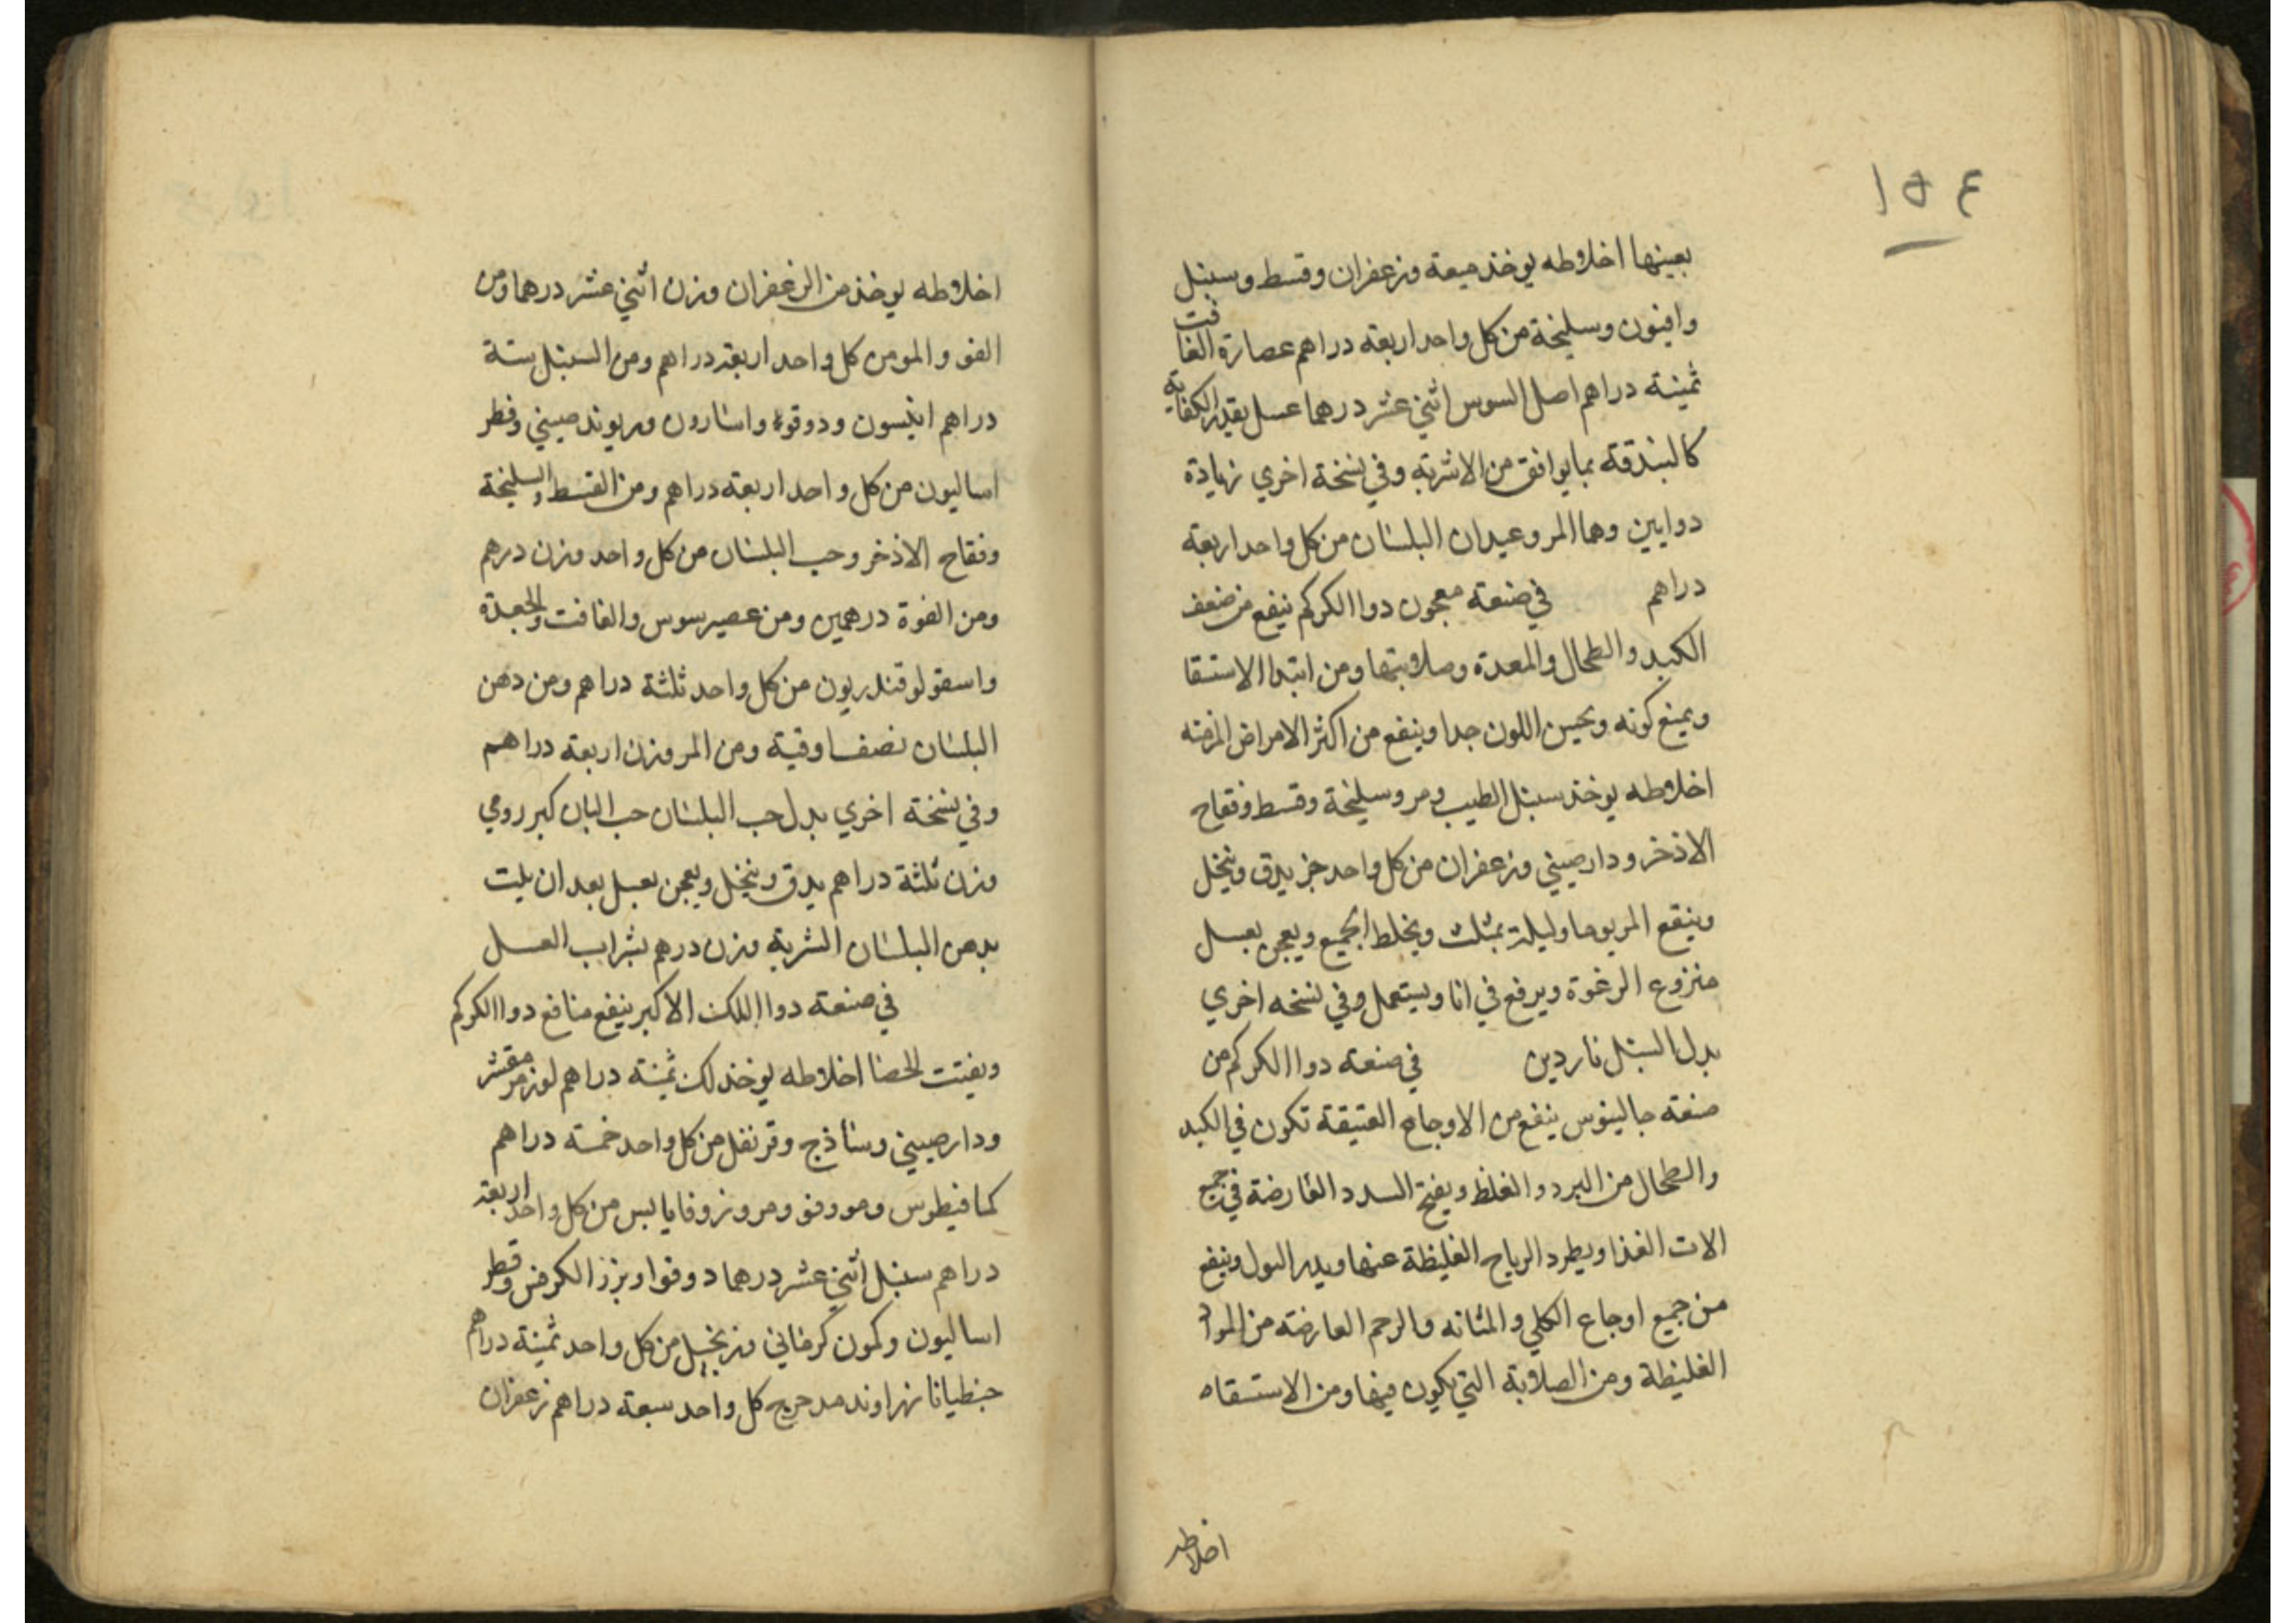 ١٥٤
بعينها اخلاطه يوخذ ميعة وزعفران وقسط وسنبل
وافيون وسليخة من كل واحد اربعة دراهم عصارة الغافت
ثمينة دراهم اصل السوس اثني عشر درهما عسل بقدر الكفاية
كالبندقة بما يوافق من الاشربة وفي نسخة اخري زيادة
دوايين وهما المر وعيدان البلسان من كل واحد اربعة
دراهم في صنعة معجون دوا الكركم ينفع من ضعف
الكبد والطحال والمعدة وصلابتها ومن ابتدا الاستسقا
ويمنع كونه ويحسن اللون جدا وينفع من اكثر الامراض المزمنه
اخلاطه يوخذ سنبل الطيب ومر وسليخة وقسط وفقاح
الاذخر ودارصيني وزعفران من كل واحد جز يدق وينخل
وينقع المر يوما وليلة بمثلث ويخلط الجميع ويعجن بعسل
منزوع الرغوة ويرفع في انا ويستعمل وفي نسخه اخري
بدل السنبل ناردين في صنعة دوا الكركم من
صنعة جالينوس ينفع من الاوجاع العتيقة تكون في الكبد
والطحال من البرد والغلظ ويفتح السدد العارضة في جميع
الات الغذا ويطرد الرياح الغليظة عنها ويدر البول وينفع
من جميع اوجاع الكلي والمثانه والرحم العارضة من المواد
الغليظة ومن الصلابة التي يكون فيها ومن الاستسقاه
اخلاطه
اخلاطه يوخذ من الزعفران وزن اثني عشر درهما ومن
الفو والمو من كل واحد اربعة دراهم ومن السنبل ستة
دراهم انيسون ودوقوا واسارون وريوند صيني وفطر
اساليون من كل واحد اربعة دراهم ومن القسط والسليخة
وفقاح الاذخر وحب البلسان من كل واحد وزن درهم
ومن الفوة درهمين ومن عصير سوس والغافت والجعدة
واسقولوقندريون من كل واحد ثلثة دراهم ومن دهن
البلسان نصف اوقية ومن المر وزن اربعة دراهم
وفي نسخة اخري بدل حب البلسان حب البان كبر رومي
وزن ثلثة دراهم يدق وينخل ويعجن بعسل بعد ان يلت
بدهن البلسان الشربة وزن درهم بشراب العسل
في صنعة دوا اللك الاكبر ينفع منافع دوا الكركم
ويفتت الحصا اخلاطه يوخذ لك ثمينة دراهم لوز مر مقشر
ودارصيني وساذج وقرنفل من كل واحد خمسة دراهم
كمافيطوس ومو وفو ومر وزوفا يابس من كل واحد اربعة
دراهم سنبل اثني عشر درهما دوقوا وبزر الكرفس وفطر
اساليون وكمون كرماني وزنجبيل من كل واحد ثمينة دراهم
جنطيانا زراوند مدحرج كل واحد سبعة دراهم زعفران